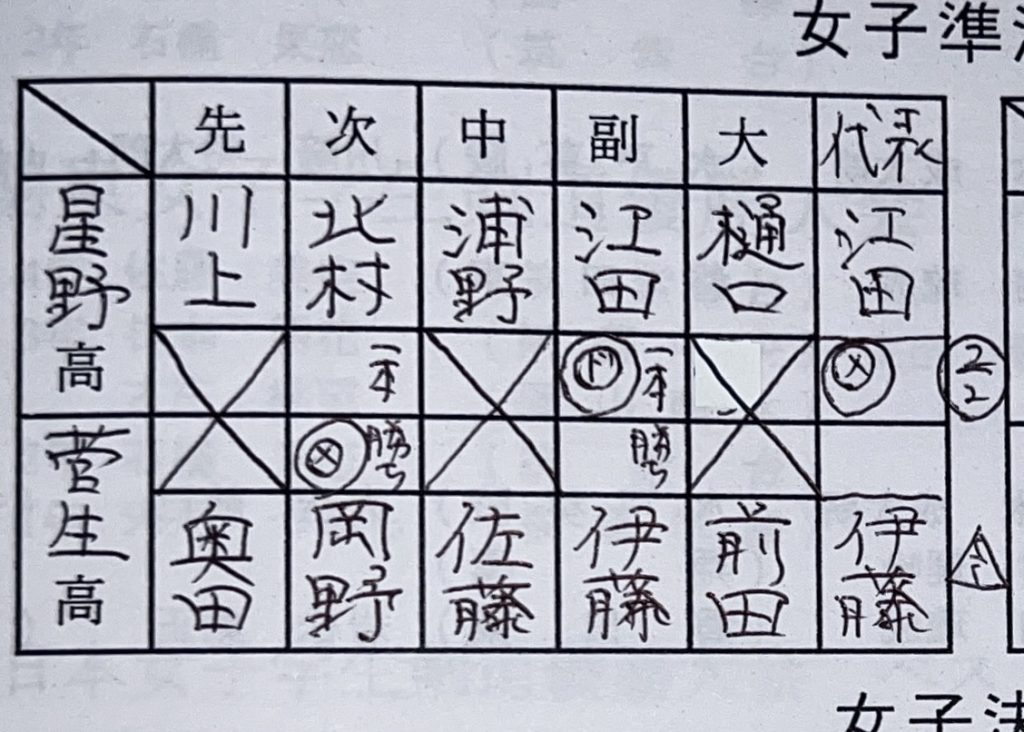 女子準
先 次 中 副 大 代表
星野高 川上 北村 浦野 江田 樋口 江田
一本 ド 一本 メ 2 2
メ 勝ち 勝ち
菅生高 奥田 岡野 佐藤 伊藤 前田 伊藤
女子決